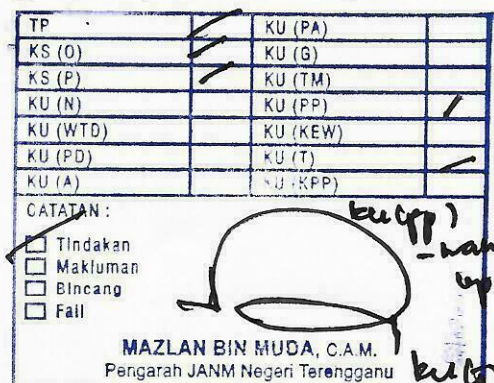 TP KU (PA)
KS (O) KU (G)
KS (P) KU (TM)
KU (N) KU (PP)
KU (WTD) KU (KEW)
KU (PD) KU (T)
KU (A) KU (KPP)
CATATAN :
ku (pp)
Tindakan
Makluman
Bincang
Fail
MAZLAN BIN MUDA, C.A.M.
Pengarah JANM Negeri Terengganu